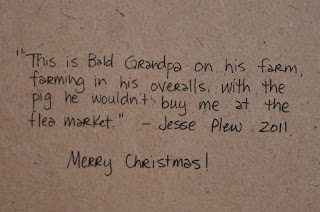 "This is Bald Grandpa on his farm,
farming in his overalls, with the
pig he wouldn't buy me at the
flea market." - Jesse Plew 2011
- Merry Christmas!